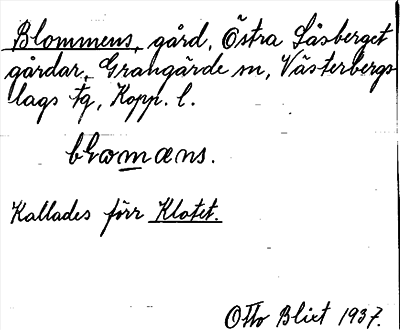 Blommens, gård, Östra Låsberget
gårdar, Grangärde sn, Västerbergs-
lags tg, Kopp. l.
blomæns.
Kallades förr Klotet.
Otto Blixt 1937.